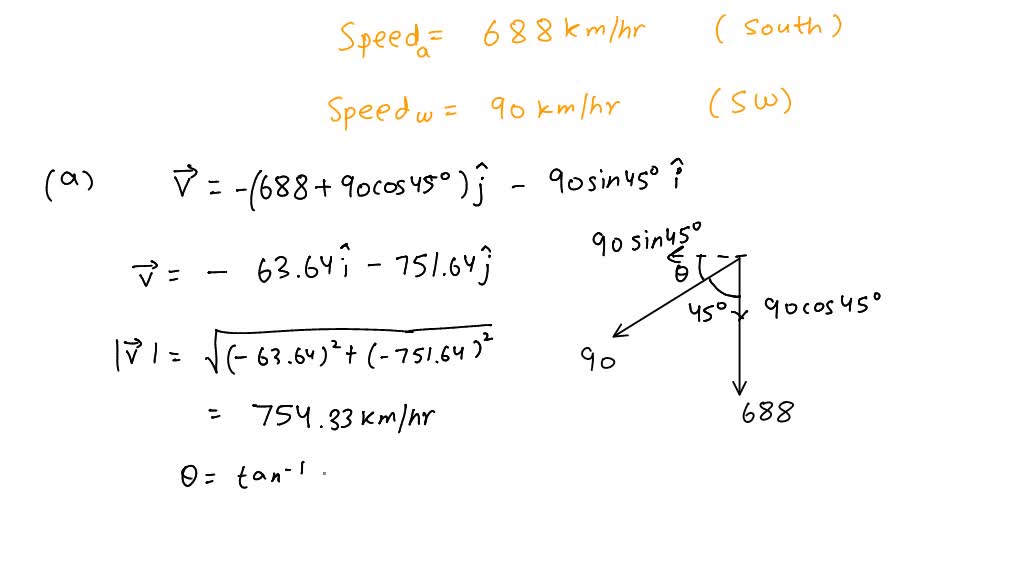 Speed_a = 688 km/hr (south)
Speed_w = 90 km/hr (SW)
(a) V⃗ = -(688 + 90cos45°)ĵ - 90sin45° î
v⃗ = - 63.64î - 751.64ĵ
|v⃗| = √(-63.64)² + (-751.64)²
= 754.33 km/hr
θ = tan⁻¹
90 sin45°
θ
45°
90cos45°
90
688